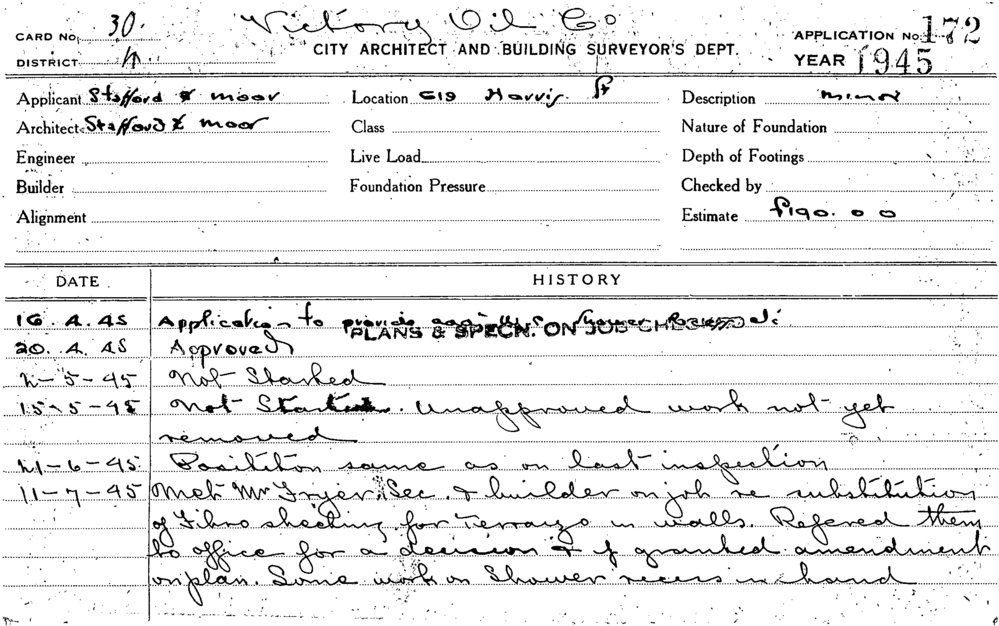 Victory Oil Co
CARD No. 30.
CITY ARCHITECT AND BUILDING SURVEYOR'S DEPT.
APPLICATION No. 172
DISTRICT
YEAR 1945
Applicant Stafford & moor Location 619 Harris St Description minor
Architect Stafford & moor Class Nature of Foundation
Engineer Live Load Depth of Footings
Builder Foundation Pressure Checked by
Alignment Estimate £190. 0 0
DATE HISTORY
16. 4. 45 Application to provide Shower
PLANS & SPECN. ON JOB CHECKED
20. 4. 45 Approved
2-5-45 Not Started
15-5-45 Not Started. Unapproved work not yet
removed
21-6-45 Posititon same as on last inspection
11-7-45 Met Mr Fryer, Sec. & builder on job re substitution
of Fibro sheeting for Terrazzo in walls. Refered them
to office for a decision & if granted amendment
on plan. Some work on Shower recess in hand